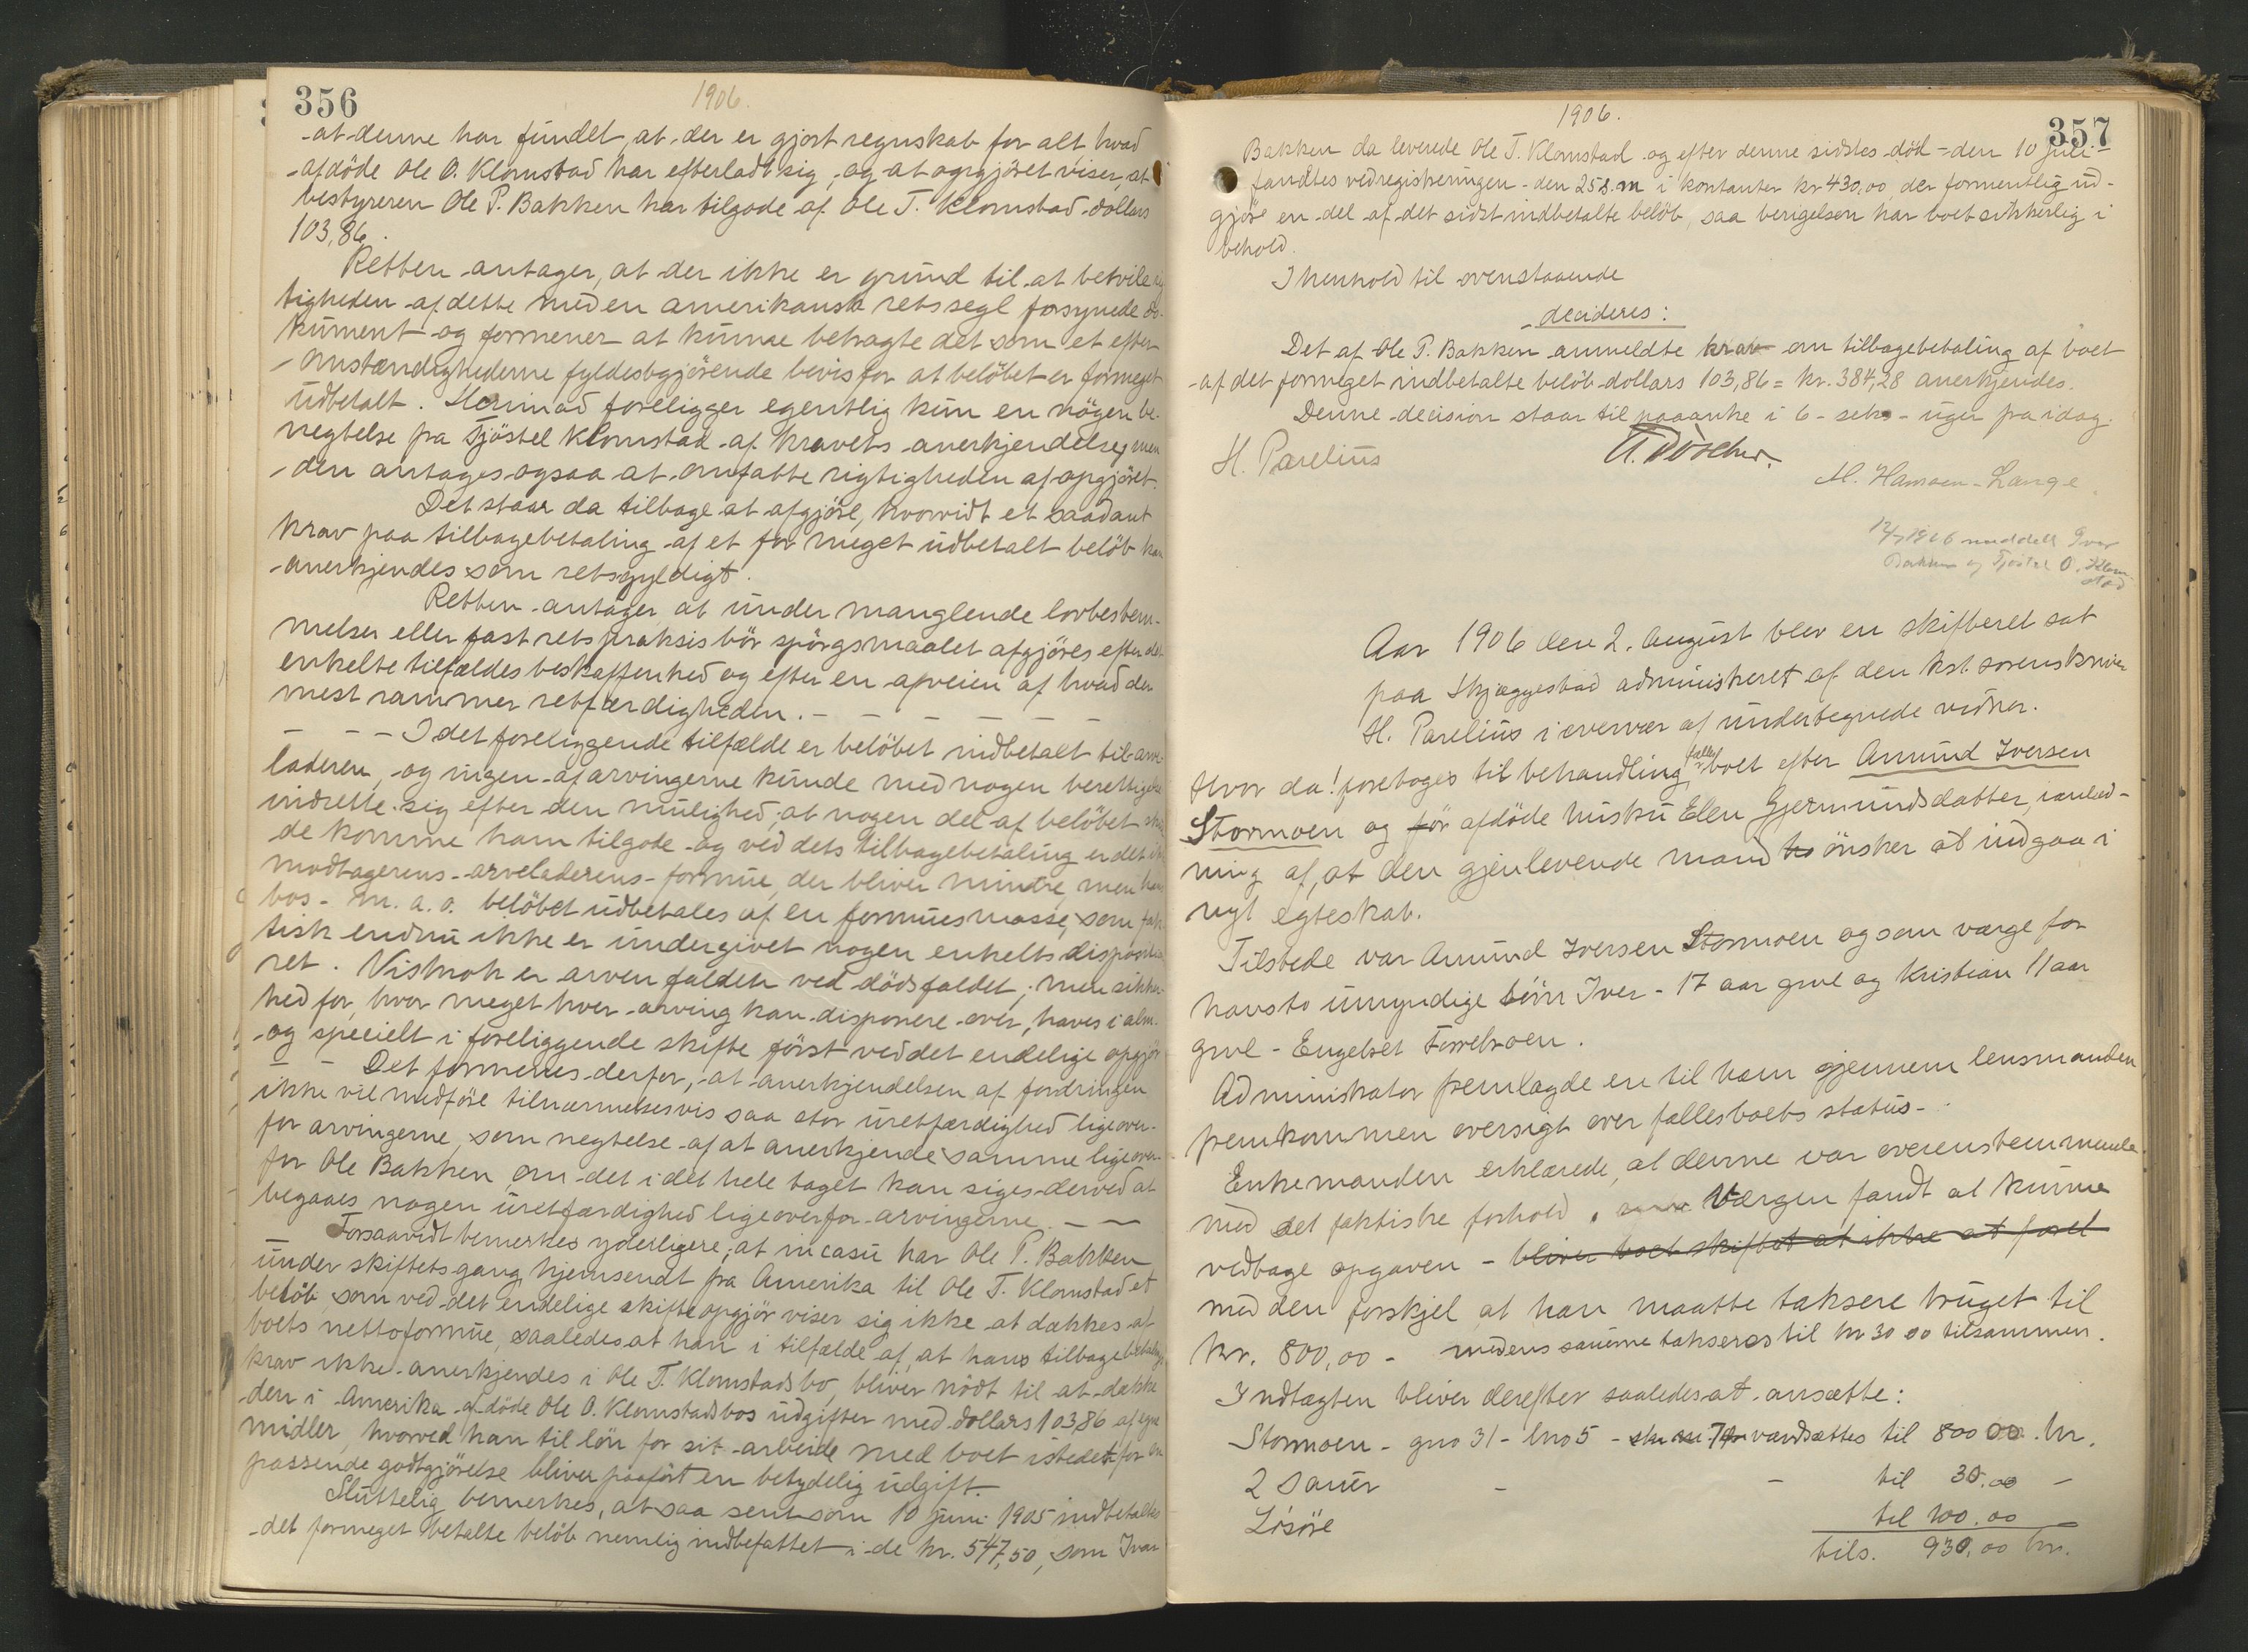 356
1906.
at denne har fundet, at der er gjort regnskab for alt hvad
afdöde Ole O. Klomstad har efterladt sig, og at opgjöret viser, at
bestyreren Ole P. Bakken har tilgode af Ole T. Klomstad dollars
103,86.
Retten antager, at der ikke er grund til at betvile
tigheden af dette med en amerikansk retssegl forsynede do-
kument og formener at kunne betragte det som et efter
omstændighederne fyldestgjörende bevis for at belöbet er formeget
udbetalt. Herimod foreligger egentlig kun en nögen be-
negtelse fra Tjöstel Klomstad af kravets anerkjendelse, men
den antages ogsaa at omfatte rigtigheden af opgjöret.
Det staar da tilbage at afgjöre, hvorvidt et saadant
krav paa tilbagebetaling af et for meget udbetalt belöb kan
anerkjendes som retsgyldigt.
Retten antager at under manglende lovbestem-
melser eller fast retspraksis bör spörgsmaalet afgjöres efter det
enkelte tilfældes beskaffenhed og efter en afveien af hvad der
mest rammer retfærdigheden. - - - - - -
- - - I det foreliggende tilfælde er belöbet indbetalt til arve-
laderen, og ingen af arvingerne kunde med nogen berettigelse
indrette sig efter den mulighed, at nogen del af belöbet skul-
de komme ham tilgode og ved dets tilbagebetaling er det ik
modtagerens - arveladerens - formue, der bliver mindre, men hans
bos - m. a. o. belöbet udbetales af en formuesmasse, som fak-
tisk endnu ikke er undergivet nogen enkelts dispositions
ret. Vistnok er arven falden ved dödsfaldet; men sikker-
hed for, hvor meget hver arving kan disponere over, haves i alm.
og specielt i foreliggende skifte först ved det endelige opgjör
- - Det formenes derfor, at anerkjendelsen af fordringen
ikke vil medföre tilnærmelsesvis saa stor uretfærdighed ligeover-
for arvingerne, som negtelse af at anerkjende samme ligeover-
for Ole Bakken, om det i det hele taget kan siges derved at
begaaes nogen uretfærdighed ligeoverfor arvingerne. - -
Forsaavidt bemerkes yderligere, at in casu har Ole P. Bakken
under skiftets gang hjemsendt fra Amerika til Ole T. Klomstad et
belöb, som ved det endelige skifteopgjör viser sig ikke at dækkes af
boets nettoformue, saaledes at han i tilfælde af, at hans tilbagebetalings
krav ikke anerkjendes i Ole T. Klomstads bo, bliver nödt til at dække
den i Amerika afdöde Ole O. Klomstads bos udgifter med dollars 103,86 af egne
midler, hvorved han til lön for sit arbeide med boet istedetfor en
passende godtgjörelse bliver paafört en betydelig udgift.
Sluttelig bemerkes, at saa sent som 10 juni 1905 indbetaltes
det formeget betalte belöb nemlig indbefattet i de kr. 547,50, som Ivar
357
1906.
Bakken da leverede Ole T. Klomstad og efter denne sidstes död - den 10 juli -
fandtes ved registreringen - den 25 s.m i kontanter kr 430,00, der formentlig ud-
gjöre en del af det sidst indbetalte belöb, saa berigelsen har boet sikkerlig i
behold.
I henhold til ovenstaaende
decideres:
Det af Ole P. Bakken anmeldte krav om tilbagebetaling af boet
af det formeget indbetalte belöb dollars 103,86 = kr. 384,28 anerkjendes.
Denne decision staar til paaanke i 6 - seks - uger fra idag.
H. Parelius
M. Hansen-Lange
1906 meddelt Ivar
Bakken og Tjöstel O. Klom-
stad
Aar 1906 den 2. August blev en skifteret sat
paa Skjæggestad administreret af den kst. sorenskriver
H. Parelius i overvær af undertegnede vidner.
Hvor da! foretoges til behandling fælles boet efter Amund Iversen
Stormoen og för afdöde hustru Elen Gjermundsdatter, i anled-
ning af, at den gjenlevende mand önsker at indgaa i
nyt egteskab.
Tilstede var Amund Iversen Stormoen og som værge for
hans to umyndige börn Iver - 17 aar gml og Kristian 11 aar
gml - Engebret
Administrator fremlagde en til ham gjennem lensmanden
fremkommen oversigt over fællesboets status.
Enkemanden erklærede, at denne var overensstemmende
med det faktiske forhold. Værgen fandt at kunne
vedtage opgaven - bliver boet skiftet at ikke at
med den forskjel at han maatte taksere bruget til
kr. 800,00 - medens sauerne takseres til kr 30 00 tilsammen.
Indtægten bliver derefter saaledes at ansætte:
Stormoen - gno 31 - bno 5 - værdsættes til 800 00 kr.
2 sauer - - til 30.00 -
Lösöre til 100.00
tils. 930,00 kr.